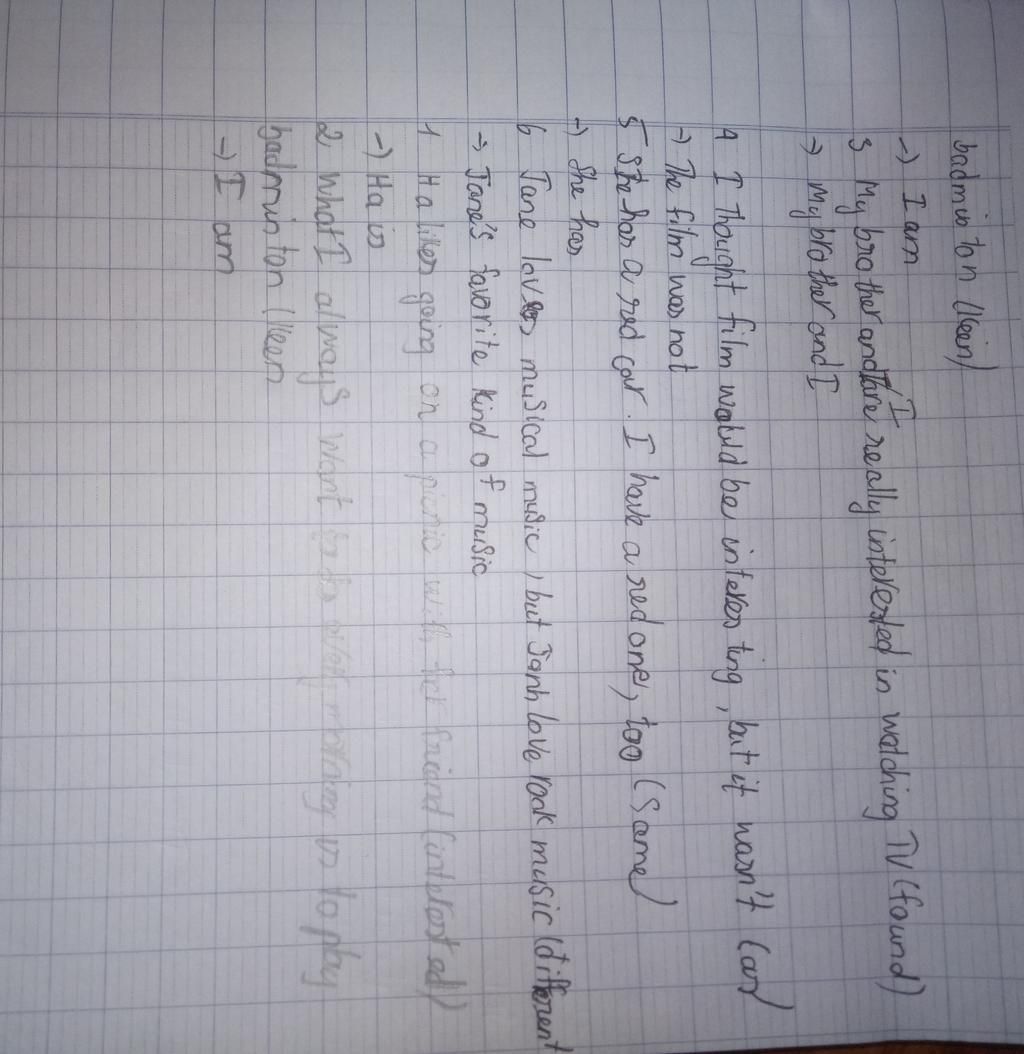 badminton (keen)
-) I am
3 My brother and I are really interested in watching TV (found)
-> My brother and I
4 I thought film would be interesting, but it wasn't (as)
-) The film was not
5 She has a red car. I have a red one, too (same)
-) She has
6 Jane loves musical music, but Janh love rock music (different
-> Jane's favorite kind of music
1 Ha likes going on a picnic with her friend (interested)
-) Ha is
2 What I always want to do every morning is to play
badminton (keen
-) I am